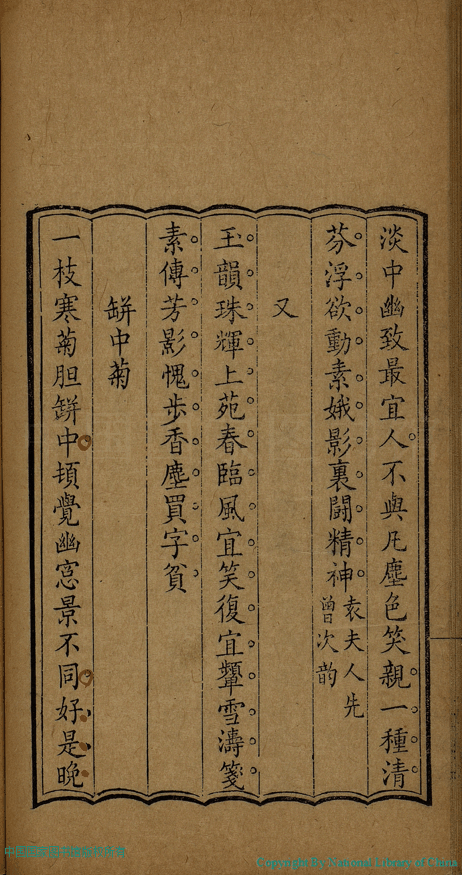 淡中幽致最宜人不與凡塵色笑親一種清
芬浮欲動素娥影裏鬪精神袁夫人先曾次韵
又
玉韻珠輝上苑春臨風宜笑復宜顰雪濤箋
素傳芳影愧步香塵買字貧
缾中菊
一枝寒菊胆缾中頓覺幽窓景不同好是晚
Copyright By National Library of China